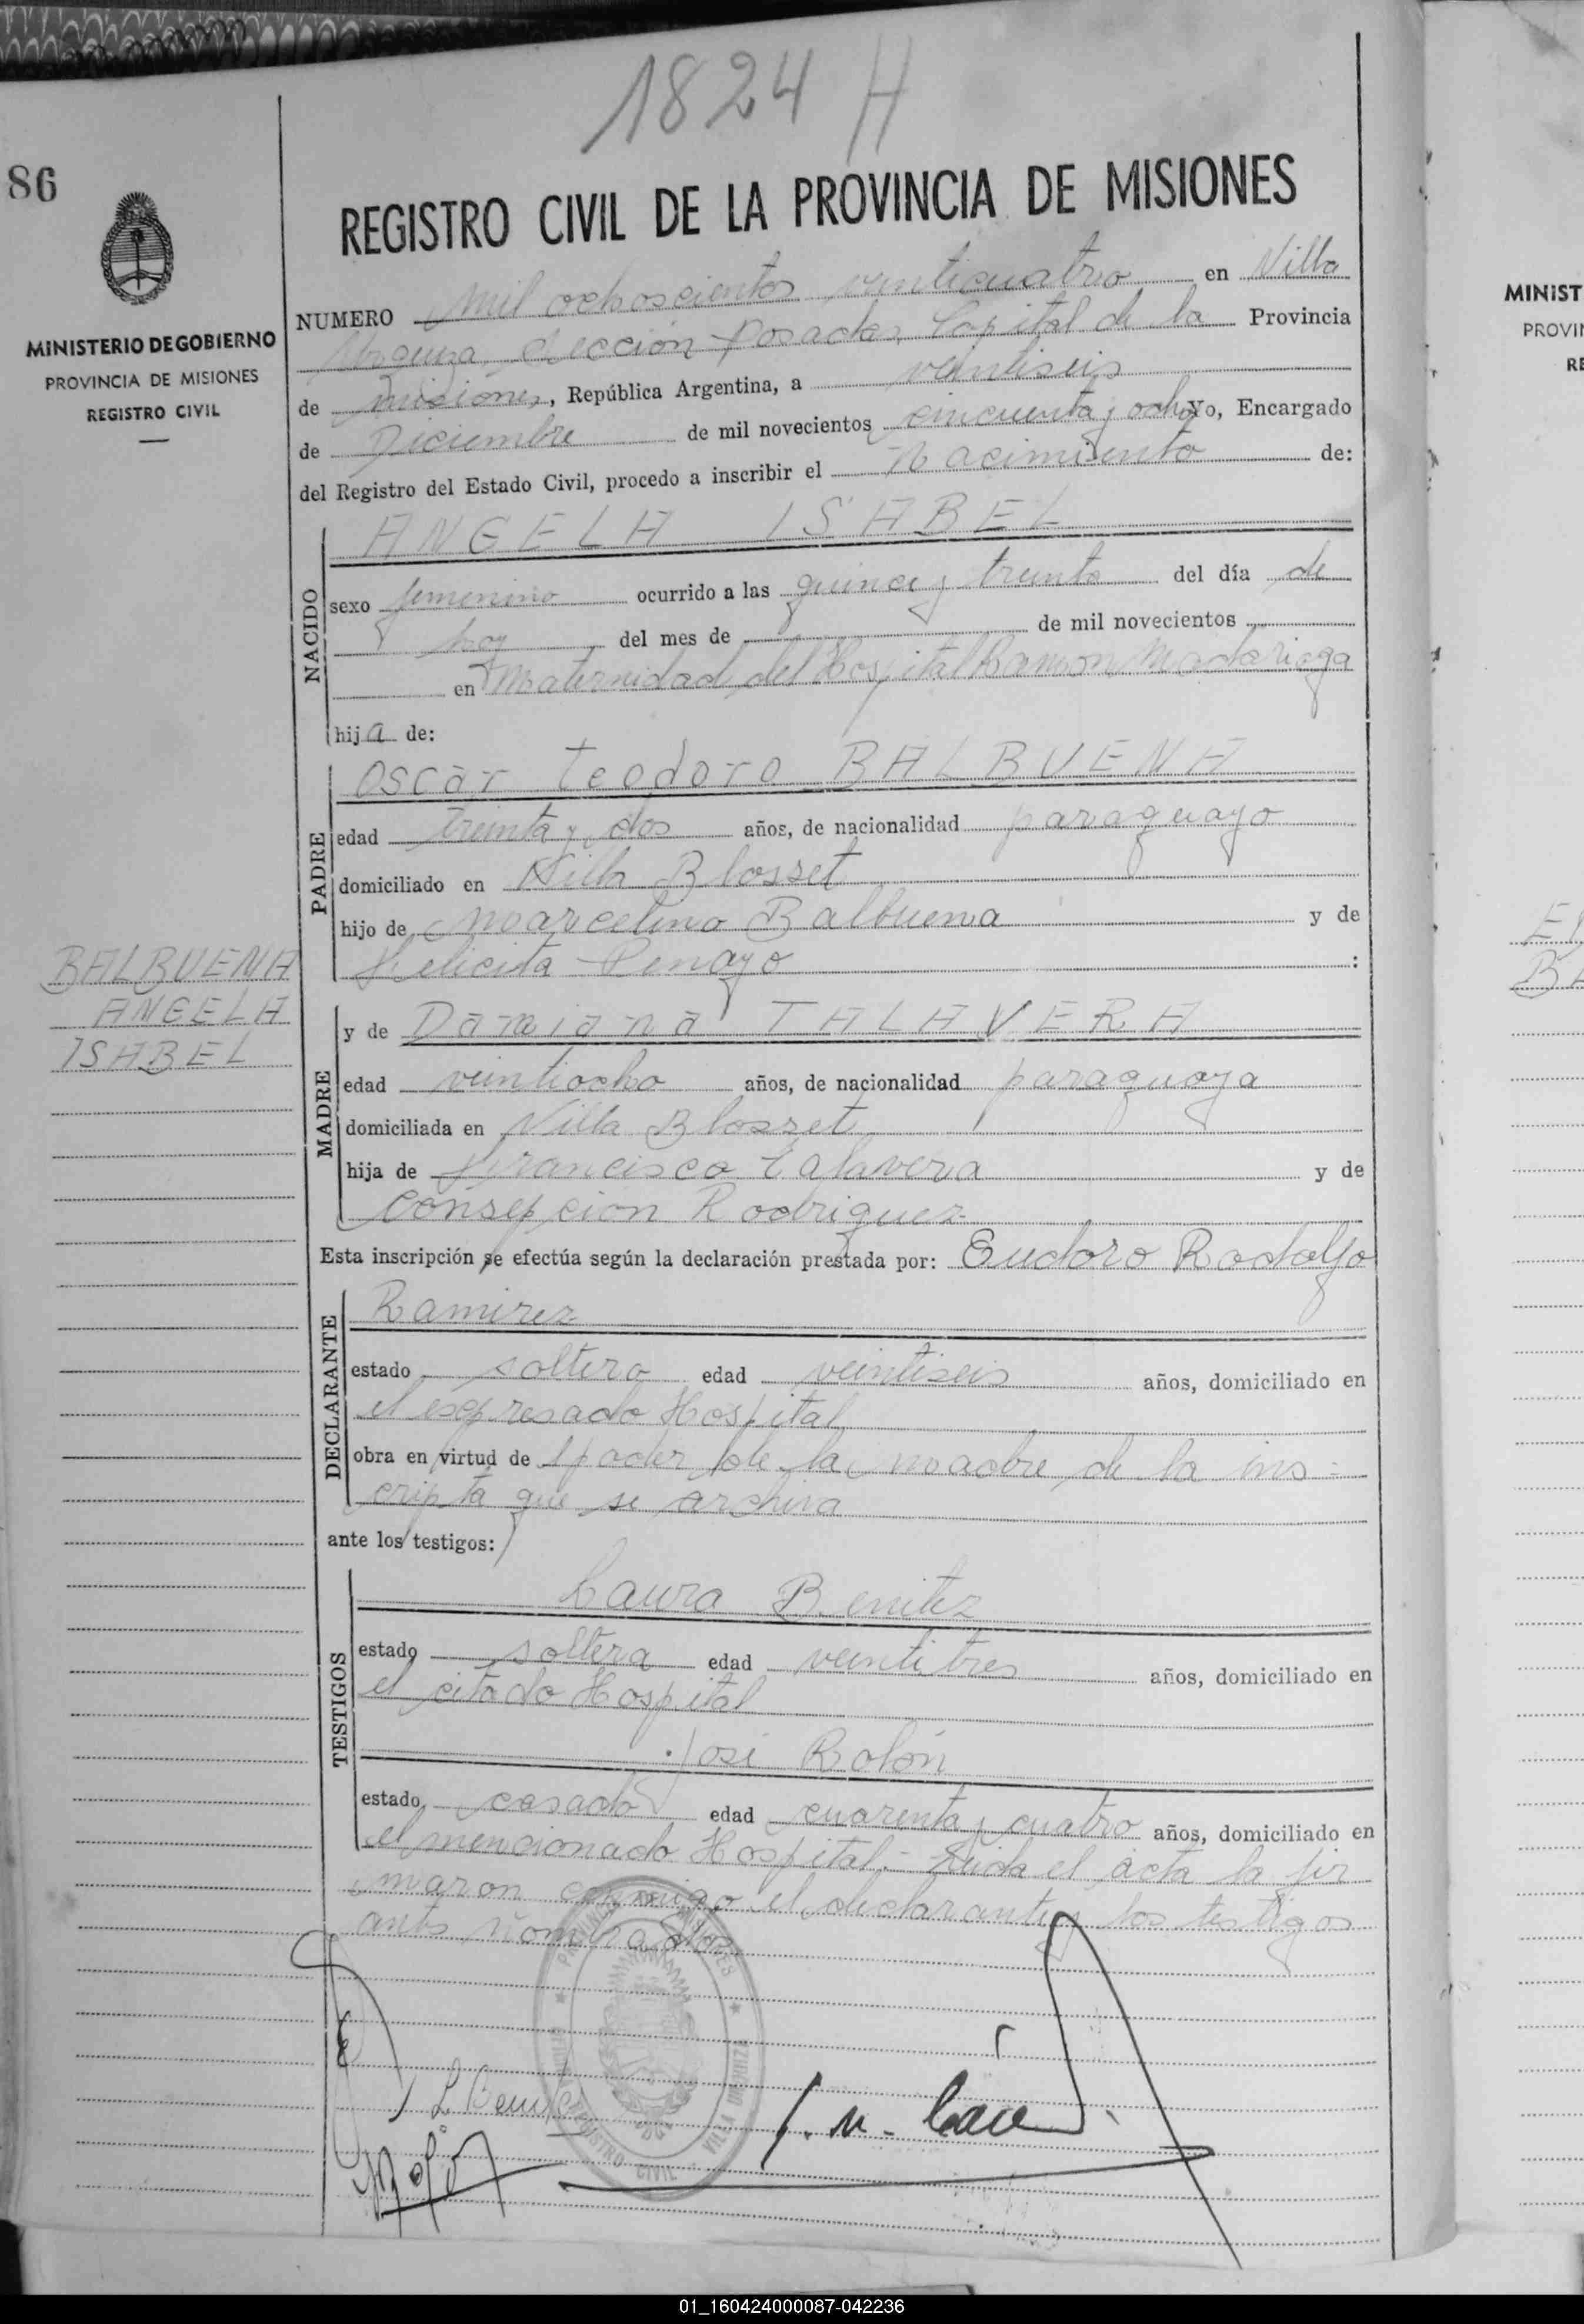 1824 H
86
REGISTRO CIVIL DE LA PROVINCIA DE MISIONES
MINISTERIO DE GOBIERNO
PROVINCIA DE MISIONES
REGISTRO CIVIL
NUMERO mil ochoscientos veinticuatro en Villa
Urquiza, Sección Posadas, Capital de la Provincia
de Misiones, República Argentina, a veintiseis
de Diciembre de mil novecientos cincuenta y ocho Yo, Encargado
del Registro del Estado Civil, procedo a inscribir el Nacimiento de:
NACIDO
ANGELA ISABEL
sexo femenino ocurrido a las quince y treinta del día de
hoy del mes de de mil novecientos
en Maternidad del Hospital Ramon Madariaga
hija de:
PADRE
Oscar Teodoro BALBUENA
edad treinta y dos años, de nacionalidad paraguayo
domiciliado en Villa Blosset
hijo de Marcelino Balbuena y de
Felicita Penayo :
BALBUENA
ANGELA
ISABEL
MADRE
y de Damiana TALAVERA
edad veintiocho años, de nacionalidad paraguaya
domiciliada en Villa Blosset
hija de Francisco Talavera y de
Consepcion Rodriguez
Esta inscripción se efectúa según la declaración prestada por: Eudoro Rodolfo
DECLARANTE
Ramirez
estado soltero edad veintiseis años, domiciliado en
el expresado Hospital
obra en virtud de poder de la madre de la ins-
cripta que se archiva
ante los testigos:
TESTIGOS
Laura Benitez
estado soltera edad veintitres años, domiciliado en
el citado Hospital
José Rolón
estado casado edad cuarenta y cuatro años, domiciliado en
el mencionado Hospital.- Leida el acta la fir
maron conmigo el declarante y los testigos
ants nombrados
PROVINCIA DE MISIONES
REGISTRO CIVIL
VILLA URQUIZA
L Benitez
MINIST
PROVIN
RE
01_160424000087-042236